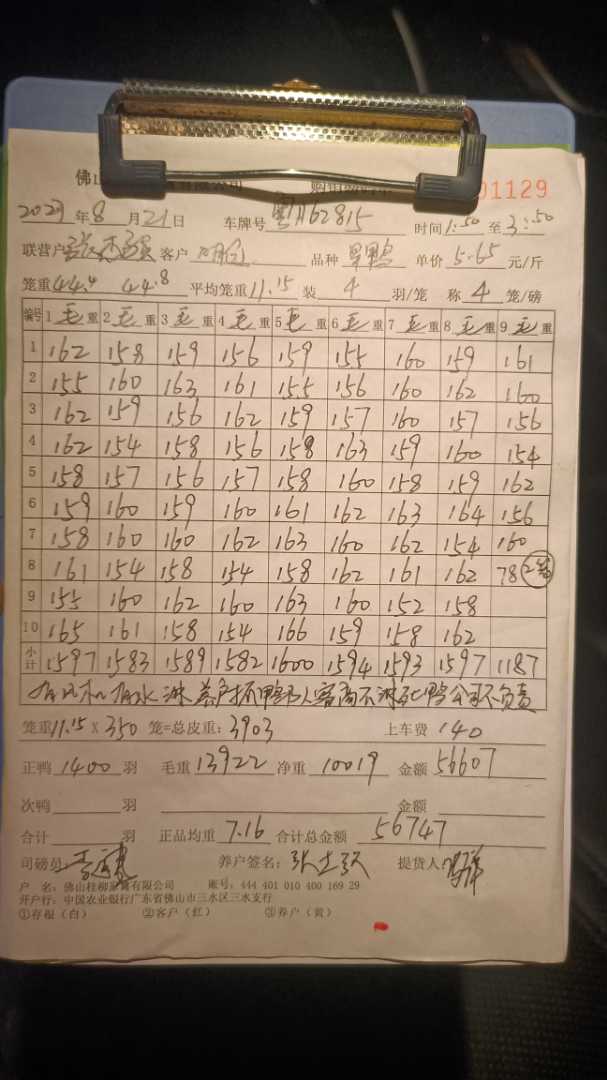 佛山
01129
2023年8月21日 车牌号 粤A62815 时间1:50至3:50
联营户 客户 品种 单价5.65元/斤
笼重44.4 44.8 平均笼重11.15装4羽/笼 称4笼/磅
编号 1毛重 2毛重 3毛重 4毛重 5毛重 6毛重 7毛重 8毛重 9毛重
1 162 158 159 156 159 155 160 159 161
2 155 160 163 161 155 156 160 162 160
3 162 159 156 162 159 157 160 157 156
4 162 154 158 156 158 163 159 160 154
5 158 157 156 157 158 160 158 159 162
6 159 160 159 160 161 162 163 164 156
7 158 160 160 162 163 160 162 154 160
8 161 154 158 154 158 162 161 162 78 2笼
9 155 160 162 160 163 160 152 158
10 165 161 158 154 166 159 158 162
小计 1597 1583 1589 1582 1600 1594 1593 1597 1187
有水淋 鸭公司不负责
笼重11.15×350笼=总皮重:3903 上车费140
正鸭1400羽 毛重13922净重10019金额56607
次鸭 羽 金额
合计 羽 正品均重7.16合计总金额56747
司磅员: 养户签名: 提货人:
户 名:佛山桂柳家禽有限公司 账号:444 401 010 400 169 29
开户行:中国农业银行广东省佛山市三水区三水支行
①存根(白) ②客户(红) ③养户(黄)